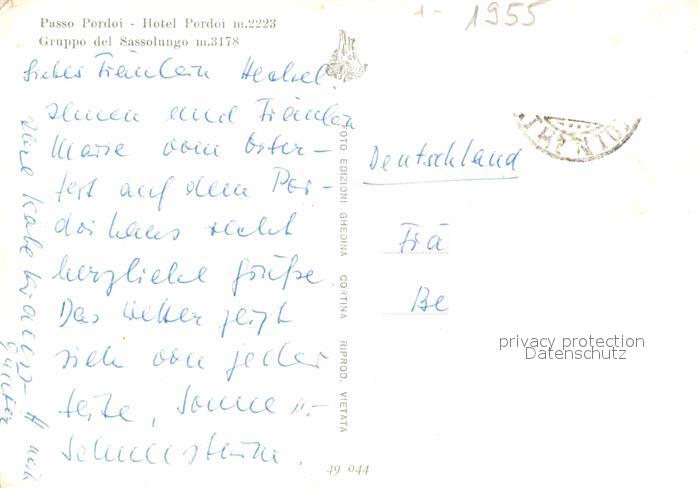 Passo Pordoi - Hotel Pordoi m.2223
Gruppo del Sassolungo m.3178
1955
Liebes Fräulein Heckel!
Ihnen und Fräulein
Marse vom Oster-
fest auf dem Por-
doi haus recht
herzliche Grüße.
Das Wetter zeigt
sich von jeder
Seite, Sonne u.-
Schneesturm.
FOTO EDIZIONI GHEDINA CORTINA RIPROD. VIETATA
Deutschland
Frä
Be
privacy protection
Datenschutz
49 044